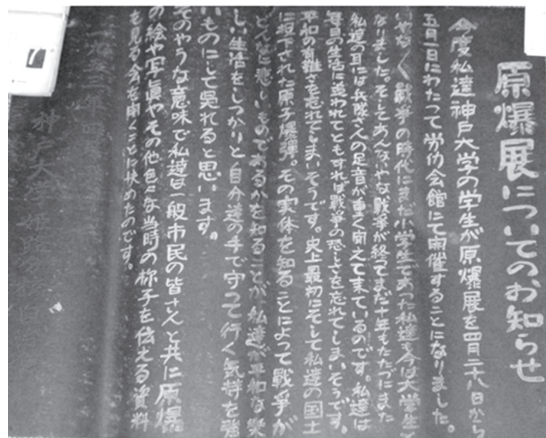 原爆展についてのお知らせ
今度私達神戸大学の学生が原爆展を四月二八日から
五月一日にわたって労仂会館にて開催することになりました。
いやな戦争の時代にまだ小学生であった私達も今は大学生に
なりました。そしてあんないやな戦争が終てまだ十年もたたずにまた
私達の耳には兵隊さんの足音が重く聞えて来ているのです。私達は
毎日の生活に追われてともすれば戦争の恐しさを忘れてしまいそうです。
平和の有難さを忘れてしまいそうです。史上最初にそして私達の国土
に投下された原子爆弾、その実体を知ることによって戦争が
どんなに悲しいものであるかを知ることが私達が平和な美
しい生活をしっかりと自分達の手で守って行く気持を強
いものにして呉れると思います。
そのやうな意味で私達は一般市民の皆さんと共に原爆
の絵や写眞やその他色々な当時の様子を伝える資料
を見る会を開くことに決めたのです。
一九五三年四
神戸大学